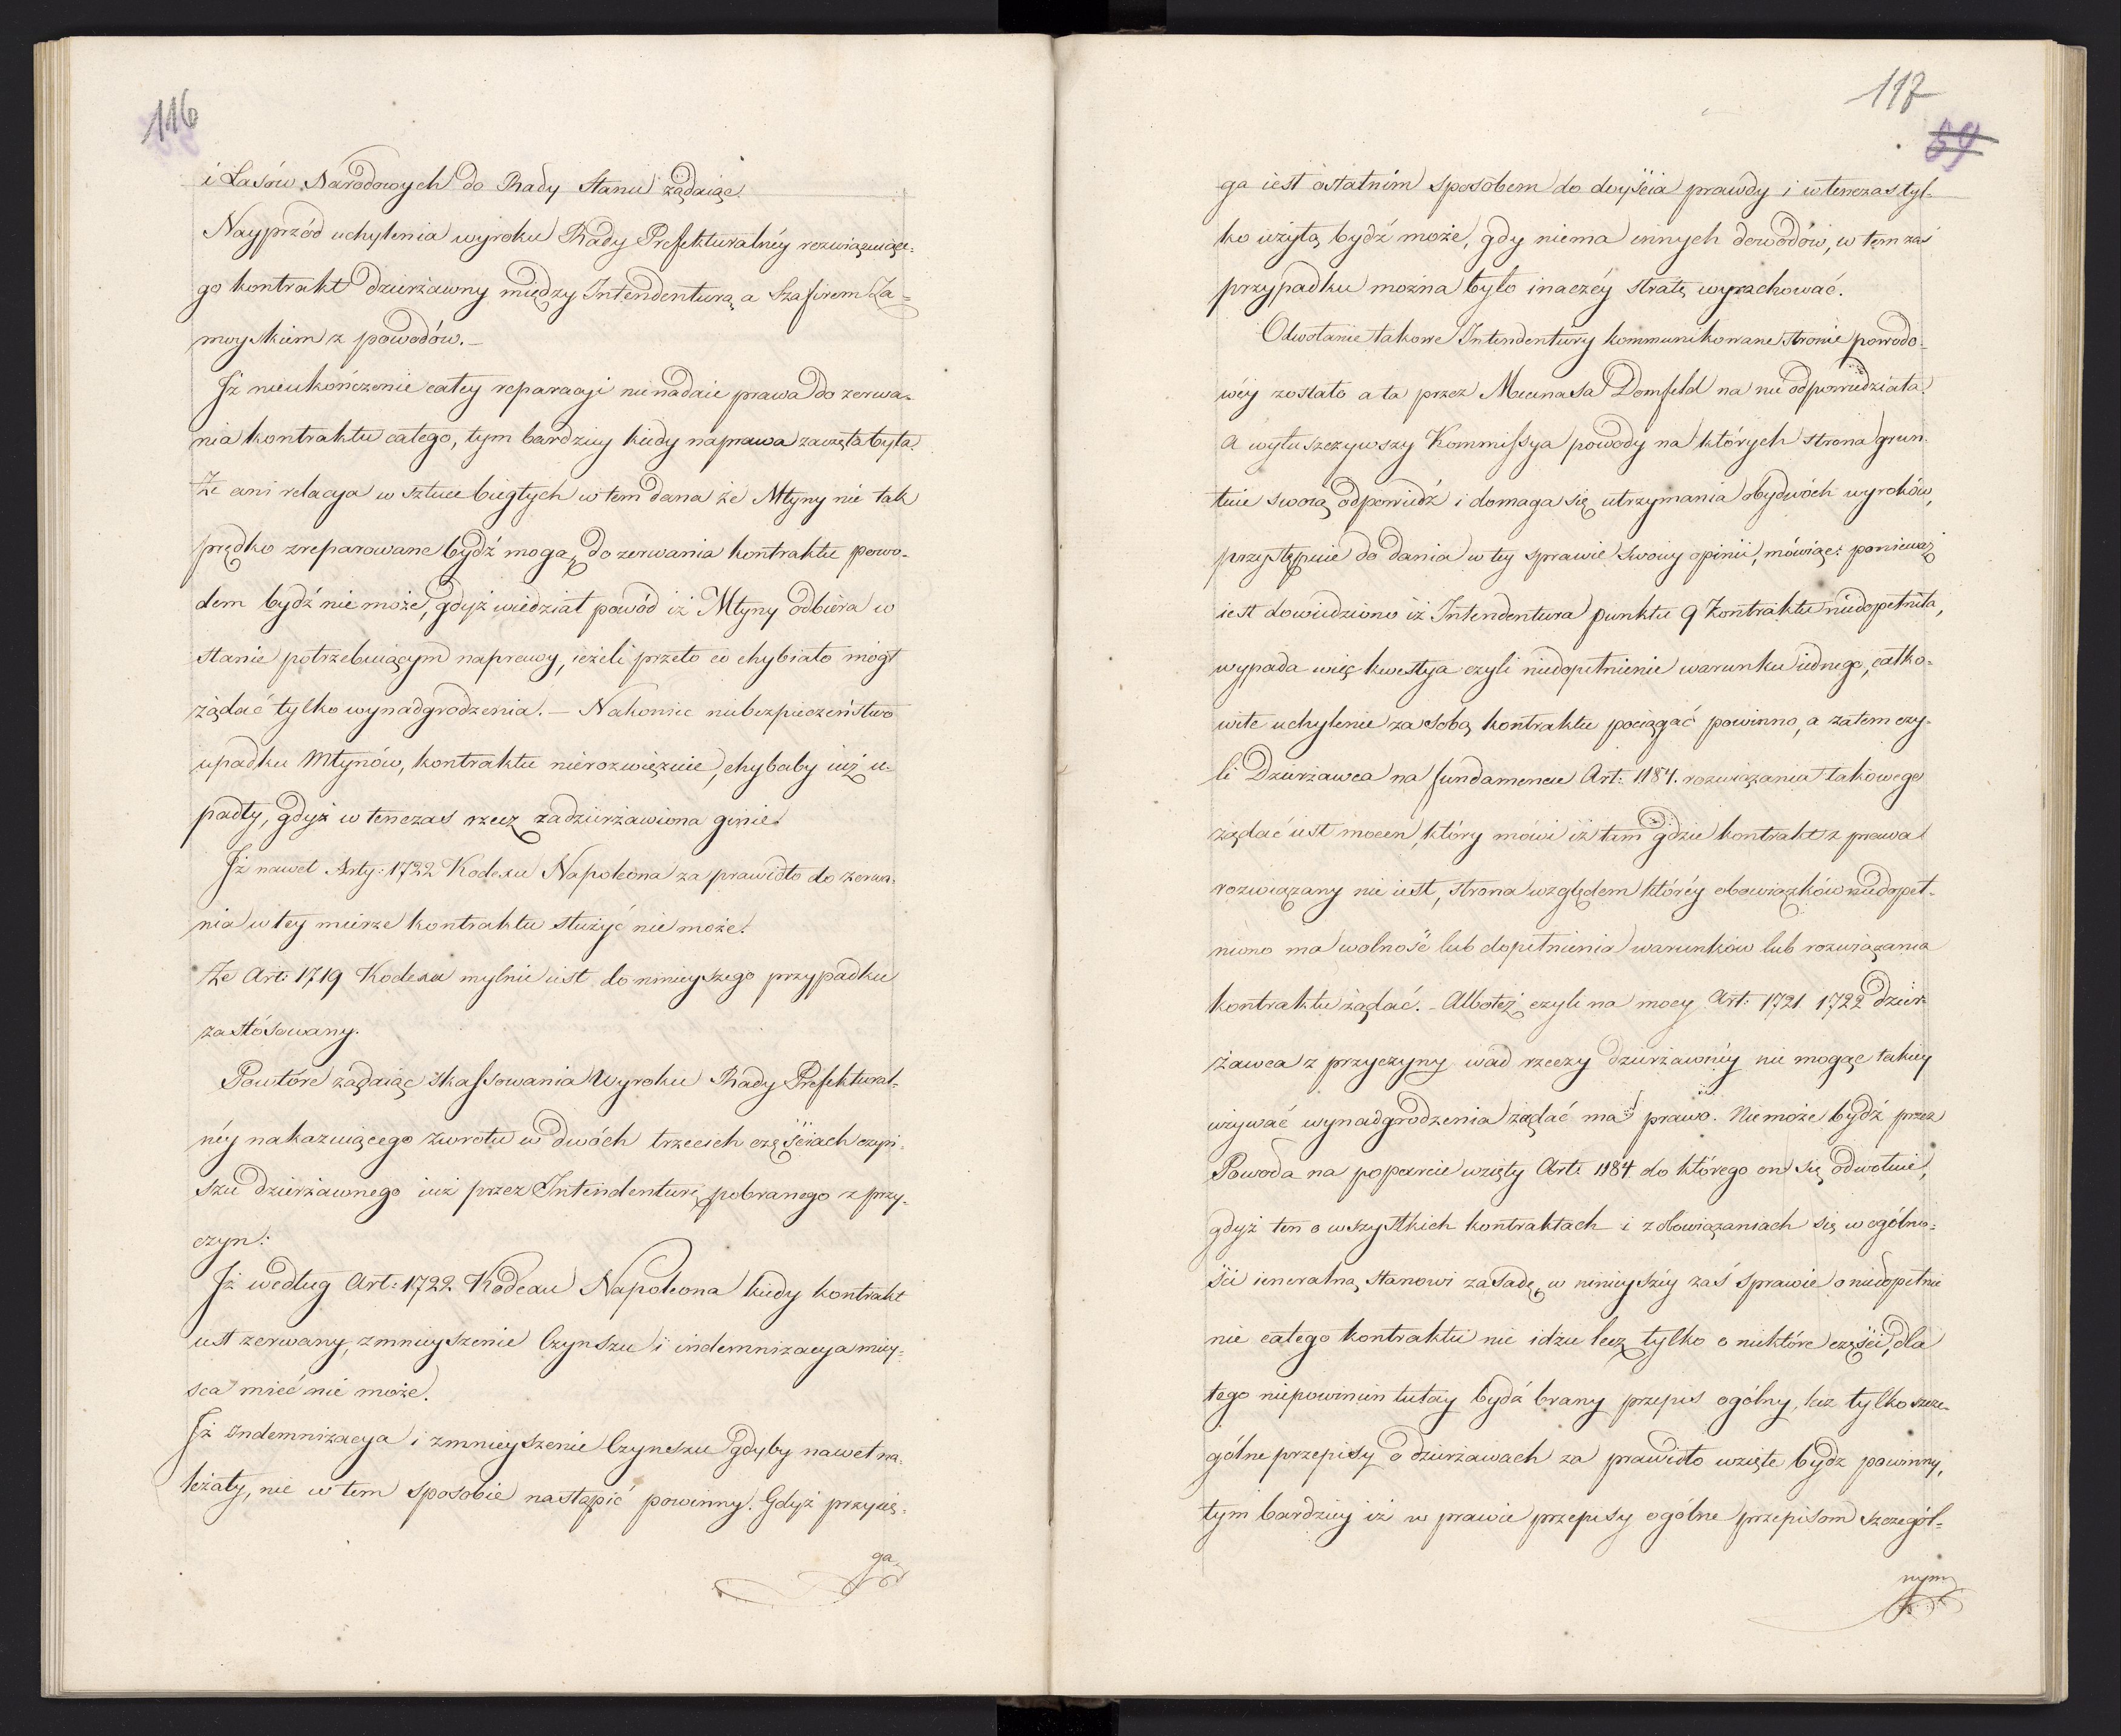 116
i Lasów Narodowych do Rady Stanu żądaiąc.
Nayprzód uchylenia wyroku Rady Prefekturalnéy rozwiązuiące-
go kontrakt dzierżawny między Intendenturą a Szafirem Za-
moyskim z powodów.—
Iż nieukończenie całey reparacyi nie nadaie prawa do zerwa-
nia kontraktu całego, tym bardziey kiedy naprawa zaczęta była.
Że ani relacya w sztuce biegłych w tem dana że Młyny nie tak
prędko zreparowane bydź mogą, do zerwania kontraktu powo-
dem bydź nie może, gdyż wiedział powód iż Młyny odbiera w
stanie potrzebuiącym naprawy, ieżeli przeto co chybiało mógł
żądać tylko wynadgrodzenia.— Nakoniec niebezpieczeństwo
upadku Młynów, kontraktu nierozwięzuie, chybaby iuż u-
padły, gdyż w tenczas rzecz zadzierżawiona ginie.
Iż nawet Arty: 1722 Kodexu Napoleona za prawidło do zerwa-
nia w tey mierze kontraktu służyć nie może.
Że Art: 1719 Kodexu mylnie iest do ninieyszego przypadku
zastósowany.
Powtóre żądaiąc skassowania Wyroku Rady Prefektural-
néy nakazuiącego zwrotu w dwóch trzecich częściach czyn-
szu dzierżawnego iuż przez Intendenturę pobranego z przy-
czyn:
Iż według Art: 1722. Kodexu Napoleona kiedy kontrakt
iest zerwany, zmnieyszenie Czynszu i indemnizacya miey-
sca mieć nie może.
Iż Indemnizacya i zmnieyszenie Czynszu gdyby nawet na-
leżały, nie w tem sposobie nastąpić powinny. Gdyż przysię-
ga
117
59
ga iest ostatnim sposobem do doyścia prawdy i w tenczas tyl-
ko użytą bydź może, gdy niema innych dowodów, w tem zaś
przypadku można było inaczéy stratę wyrachować.
Odwołanie takowe Intendentury kommunikowane stronie powodo-
wéy zostało a ta przez Mecenasa Domfeld na nie odpowiedziała.
A wyłuszczywszy Kommissya powody na których strona grun-
tuie swoią odpowiedź i domaga się utrzymania obydwóch wyroków,
przystępuie do dania w tey sprawie swoiey opinii, mówiąc: ponieważ
iest dowiedziono iż Intendentura punktu 9 Kontraktu niedopełniła,
wypada więc kwestya czyli niedopełnienie warunku iednego, całko-
wite uchylenie za sobą kontraktu pociągać powinno, a zatem czy-
li Dzierżawca na fundamencie Art: 1184. rozwiązania takowego
żądać iest mocen, który mówi iż tam gdzie kontrakt z prawa
rozwiązany nie iest, strona względem któréy obowiązków niedopeł-
niono ma wolność lub dopełnienia warunków lub rozwiązania
kontraktu żądać.- Albo też czyli na mocy Art: 1721 1722 dzier-
żawca z przyczyny wad rzeczy dzierżawnéy nie mogąc takiey
używać wynadgrodzenia żądać ma prawo. Nie może bydź przez
Powoda na poparcie wzięty Art: 1184 do którego on się odwołuie,
gdyż ten o wszystkich kontraktach i zobowiązaniach się w ogólno-
ści ieneralną stanowi zasadę, w ninieyszéy zaś sprawie o niedopełnie
nie całego kontraktu nie idzie lecz tylko o niektóre części, dla
tego niepowinien tutay bydź brany przepis ogólny, lecz tylko szcze-
gólne przepisy o dzierżawach za prawidło wzięte bydź powinny,
tym bardziey iż w prawie przepisy ogólne przepisom szczegól-
nym